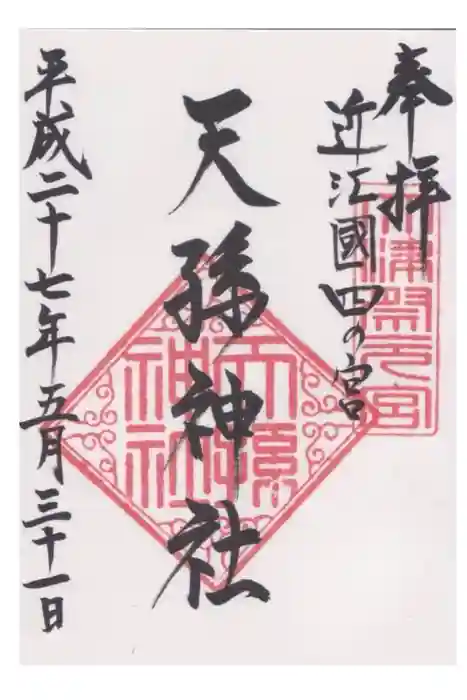 奉拝
近江國四の宮
大津祭元之宮
天孫神社
天孫神社
平成二十七年五月三十一日